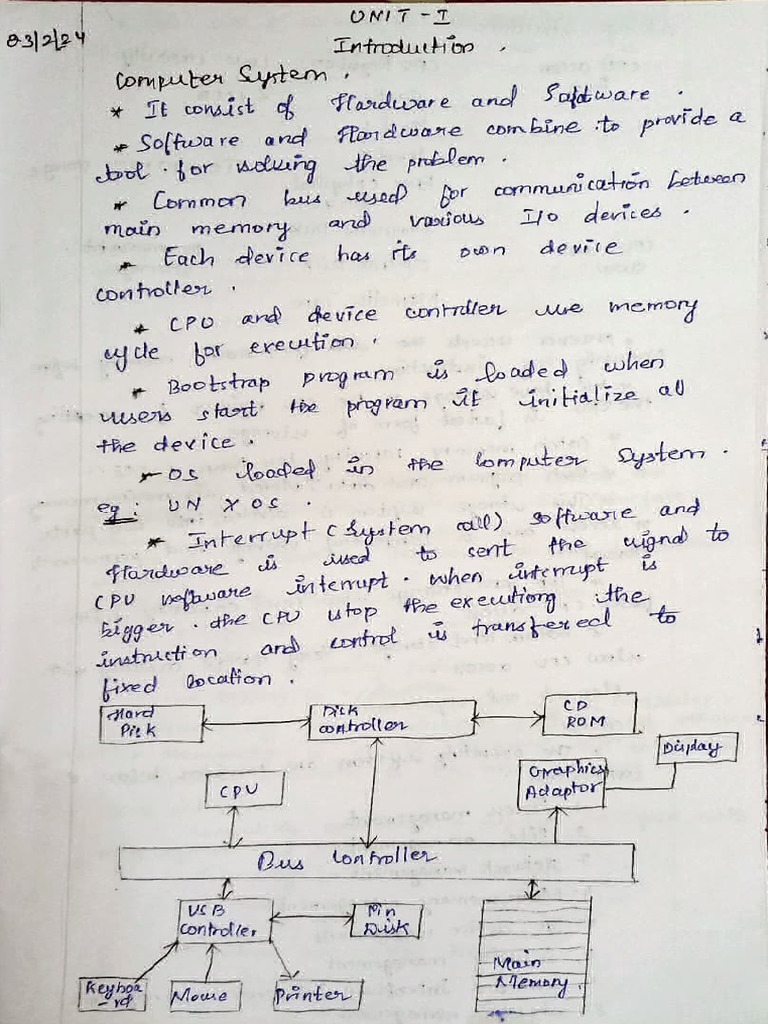 UNIT - I
03/2/24
Introduction .
Computer System .
* It consist of Hardware and Software .
* Software and Hardware combine to provide a
tool for solving the problem .
* Common bus used for communication between
main memory and various I/O devices .
* Each device has its own device
controller .
* CPU and device controller use memory
cycle for execution .
* Bootstrap program is loaded when
users start the program it initialize all
the device .
* OS loaded in the Computer System .
eg : UN X OS .
* Interrupt (System call) software and
Hardware is used to sent the signal to
CPU software interrupt . when interrupt is
tigger . the CPU stop the executiong the
instruction and control is transfered to
fixed location .
Hard Disk
Disk controller
CD ROM
Display
CPU
Graphics Adaptor
Bus Controller
USB Controller
Pin Disk
Main Memory .
Keyboa -rd
Mouse
Printer